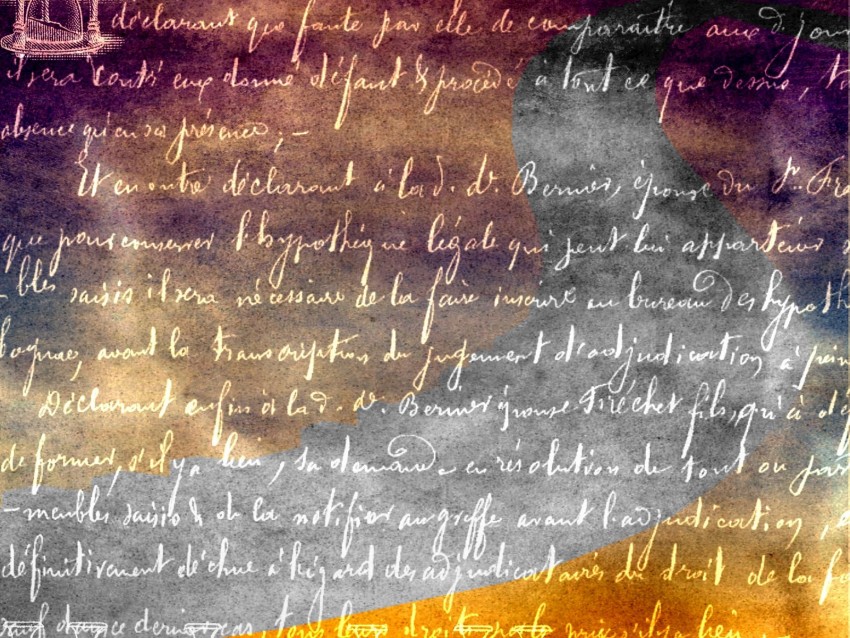 déclarant que faute par elle de comparaître aux d. jour
il sera contr'eux donné défaut & procédé à tout ce que dessus, t
absence qu'en sa présence; —
Et en outre déclarant à la d. de. Bernier, épouse du Sr. Fré
que pour conserver l'hypothèque légale qui peut lui appartenir s
-bles saisis il sera nécessaire de la faire inscrire au bureau des hypoth
avant la transcription du jugement d'adjudication, à pein
Déclarant enfin à la d. de. Bernier épouse Fréchet fils, qu'à dé
de former, s'il y a lieu, sa demande en résolution de tout ou par
-meubles saisis & de la notifier au greffe avant l'adjudication,
définitivement déchue à l'égard des adjudicataires du droit de la f
ce dernier cas, tous droits